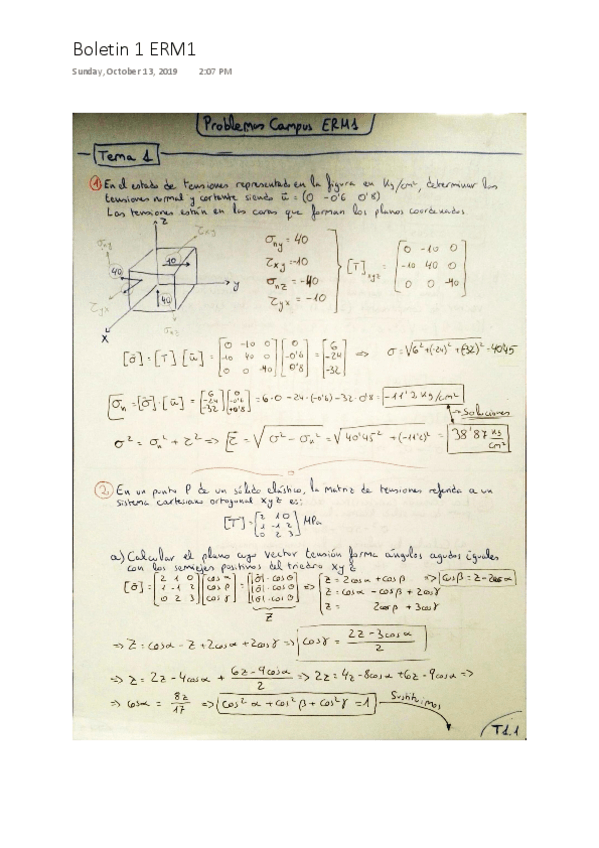 Boletin 1 ERM1
Sunday, October 13, 2019 2:07 PM
Problemas Campus ERM1
Tema 1
① En el estado de tensiones representado en la figura en Kg/cm², determinar las
tensiones normal y cortante siendo ū = (0 -0'6 0'8)
Las tensiones están en las caras que forman los planos coordenados
z
σny
τxy
10
40
40
y
τyx
σnz
x
σny = 40
τxy = -10
σnz = -40
τyx = -10
[T]xyz = [0 -10 0
-10 40 0
0 0 -40]
[σ̄] = [T] [ū] = [0 -10 0; -10 40 0; 0 0 -40] [0; -0'6; 0'8] = [6; -24; -32] => σ = √6²+(-24)²+(-32)² = 40'45
σn = [σ̄]·[ū] = [6; -24; -32] [0; -0'6; +0'8] = 6·0 -24·(-0'6) -32·0'8 = -11'2 Kg/cm²
→ Soluciones
σ² = σn² + τ² => τ = √σ² - σn² = √40'45² + (-11'2)² = 38'87 Kg/cm²
② En un punto P de un sólido elástico, la matriz de tensiones referida a un
sistema cartesiano ortogonal xyz es:
[T] = [2 1 0; 1 -1 2; 0 2 3] MPa
a) Calcular el plano cuyo vector tensión forma ángulos agudos iguales
con los semiejes positivos del triedro xyz
[σ̄] = [2 1 0; 1 -1 2; 0 2 3] [cos α; cos β; cos γ] = [|σ̄|·cos θ; |σ̄|·cos θ; |σ̄|·cos θ] => z = 2cos α + cos β => cos β = z - 2cos α
z = cos α - cos β + 2cos γ
z = 2cos β + 3cos γ
z
=> z = cos α - z + 2cos α + 2cos γ => cos γ = (2z - 3cos α)/2
=> z = 2z - 4cos α + (6z - 9cos α)/2 => 2z = 4z - 8cos α + 6z - 9cos α =>
=> cos α = 8z/17 => cos² α + cos² β + cos² γ = 1 Sustituimos
T1.1